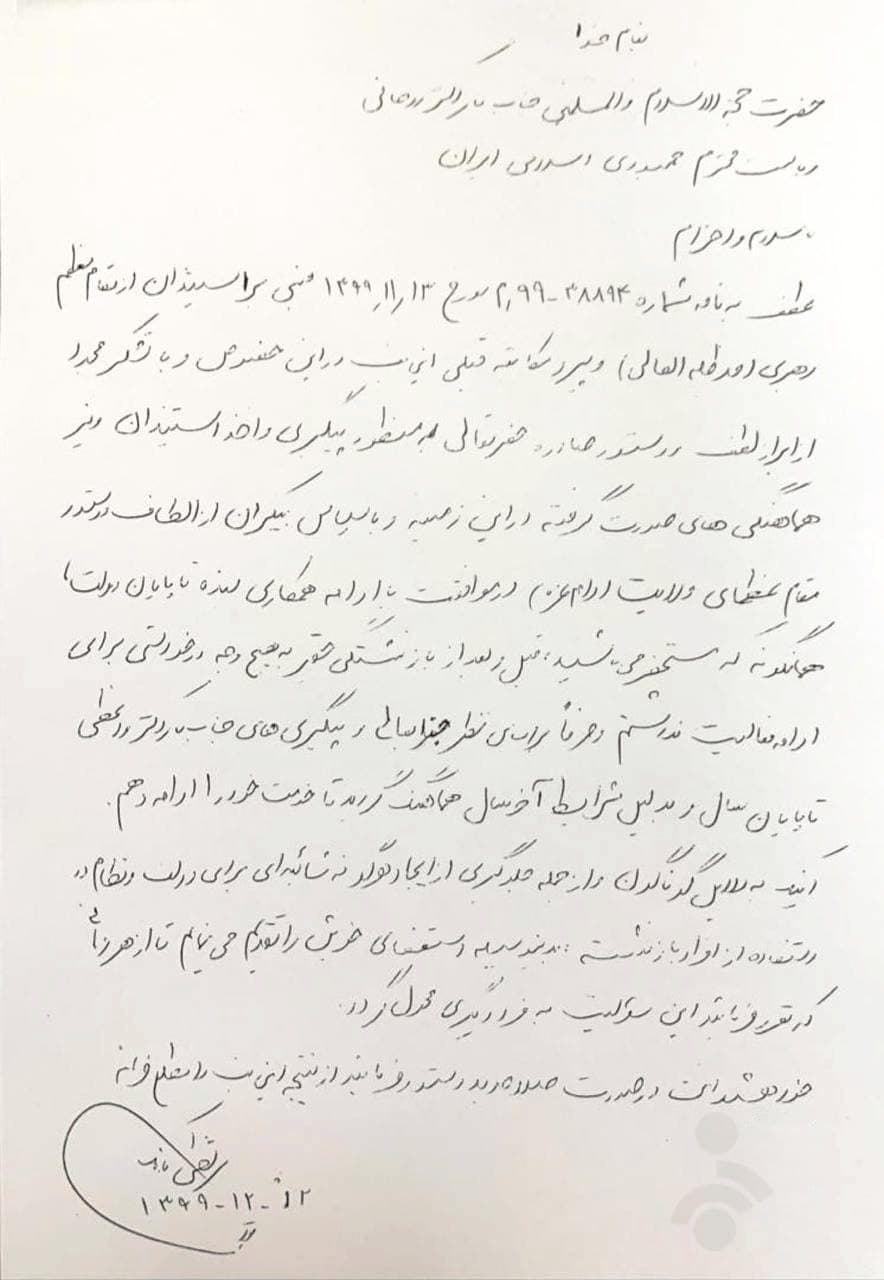 بنام خدا
حضرت حجة الاسلام والمسلمین جناب آقای دکتر روحانی
ریاست محترم جمهوری اسلامی ایران
با سلام و احترام
عطف به نامه شماره ۳۸۸۹۴-۲٫۹۹ مورخ ۱۳۹۹٫۱۱٫۱۳ مبنی بر استیذان از مقام معظم
رهبری (مد ظله العالی) و پیرو مکاتبه قبلی این جانب در این خصوص و با تشکر مجدد
از ابراز لطف و دستور صادره حضرتعالی به منظور پیگیری و اخذ استیذان و نیز
هماهنگی های صورت گرفته در این زمینه و با سپاس بیکران از الطاف و دستور
مقام عظمای ولایت (دام عزه) در موافقت با ادامه همکاری بنده تا پایان دولت،
همانگونه که مستحضر می باشید، قبل و بعد از بازنشستگی حقیر به هیچ وجه درخواستی برای
ادامه فعالیت نداشتم و صرفاً بر اساس نظر جنابعالی و پیگیری های جناب آقای دکتر واعظی
تا پایان سال و بدلیل شرایط آخر سال هماهنگ گردید تا خدمت خود را ادامه دهم.
اینک به دلایل گوناگون و از جمله جلوگیری از ایجاد هرگونه شائبه ای برای دولت و نظام در
استفاده از افراد بازنشسته، بدینوسیله استعفای خویش را تقدیم می نمایم تا از هر زمانی
که مقرر فرمائید این مسئولیت به فرد دیگری محول گردد.
خواهشمند است در صورت صلاحدید دستور فرمایند از نتیجه این جانب را مطلع فرمایند
با تشکر
۱۳۹۹-۱۲-۱۲